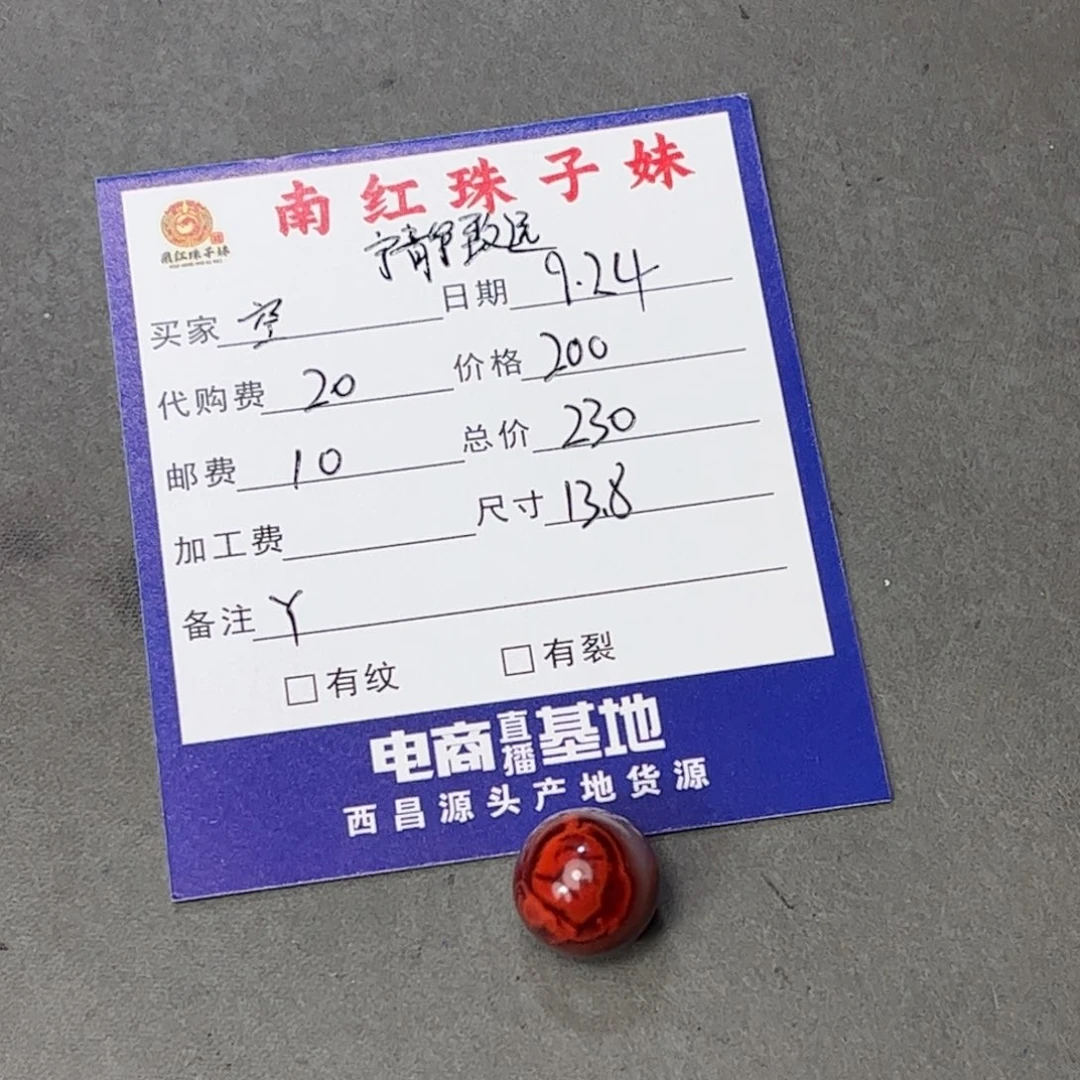 南红珠子妹
南红珠子妹
宁静致远
买家 空 日期 9.24
代购费 20 价格 200
邮费 10 总价 230
加工费 尺寸 13.8
备注 Y
□有纹 □有裂
电商直播基地
西昌源头产地货源